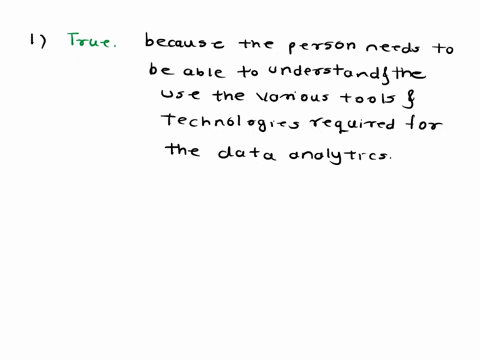 1) True. because the person needs to
be able to understand & the
use the various tools &
technologies required for
the data analytics.